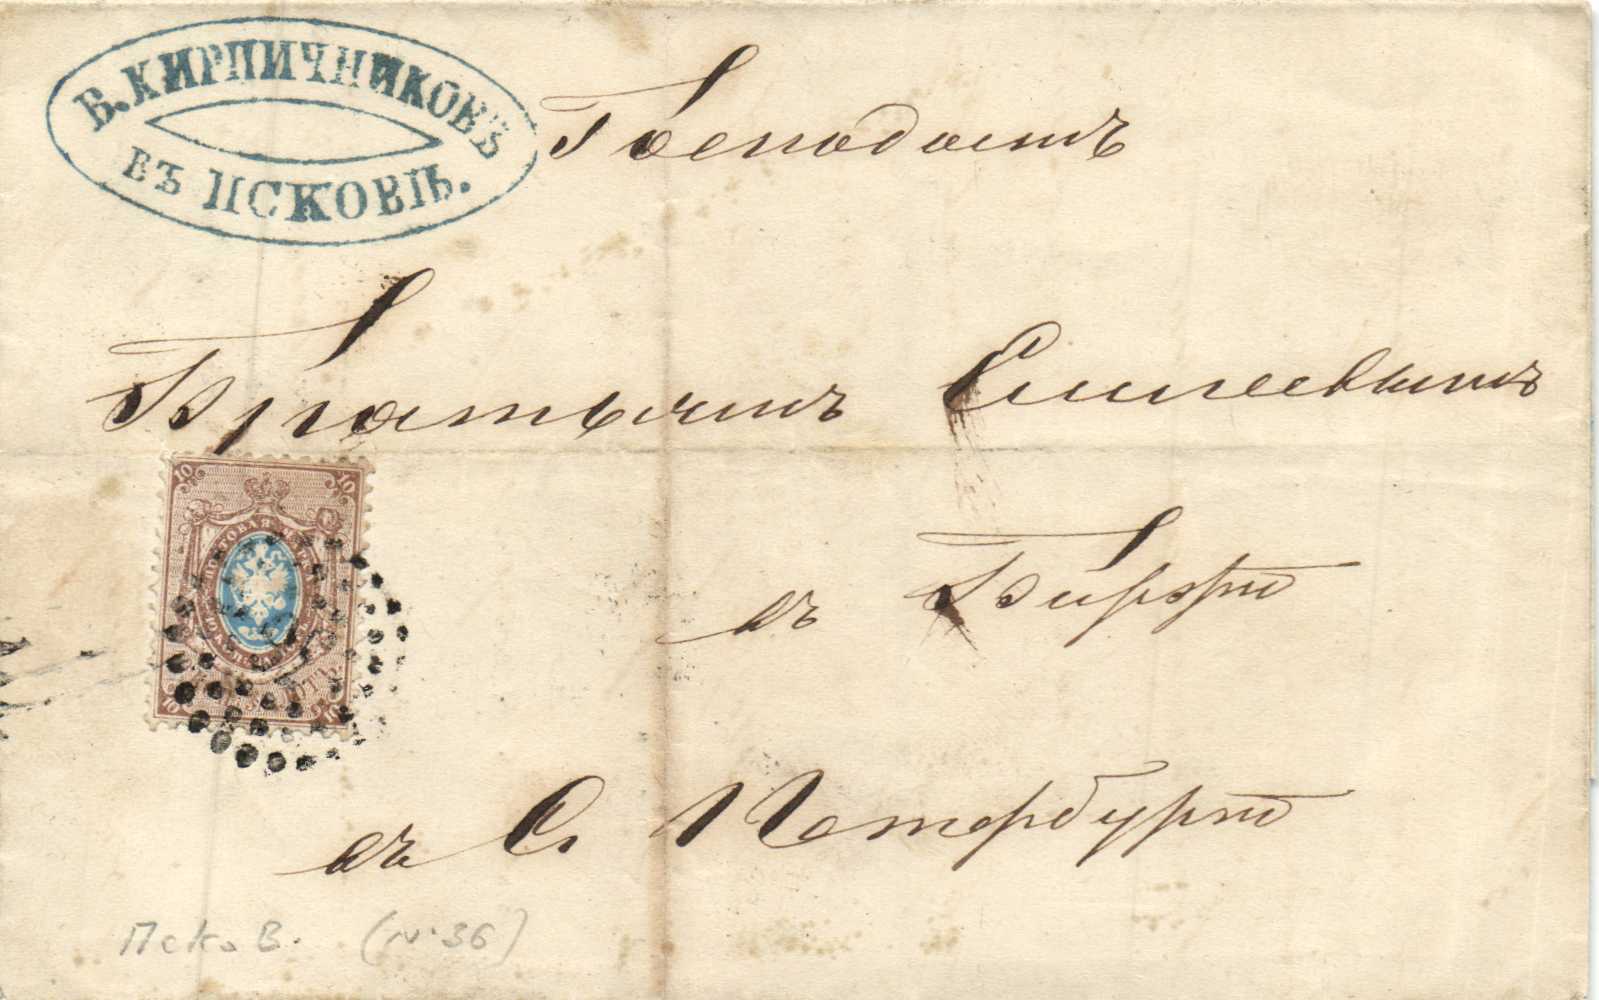 В. КИРПИЧНИКОВЪ
ВЪ ПСКОВѢ.
Господамъ
Братьямъ Елисеевымъ
въ Биржѣ
въ С. Петербургѣ
10 10
ПОЧТОВАЯ МАРКА
10 10
Псков. (№36)